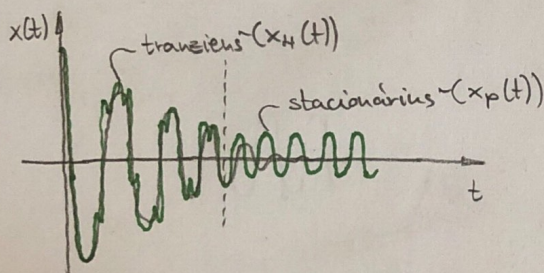 x(t)
tranziens~(x_H(t))
stacionárius~(x_p(t))
t